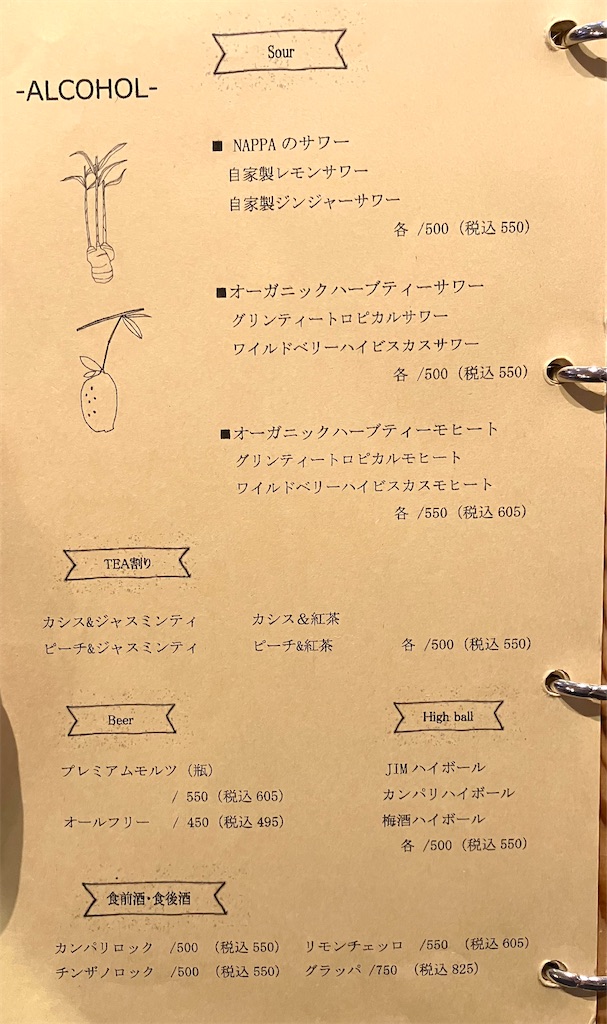 -ALCOHOL-
Sour
■ NAPPAのサワー
自家製レモンサワー
自家製ジンジャーサワー
各 /500（税込550）
■オーガニックハーブティーサワー
グリンティートロピカルサワー
ワイルドベリーハイビスカスサワー
各 /500（税込550）
■オーガニックハーブティーモヒート
グリンティートロピカルモヒート
ワイルドベリーハイビスカスモヒート
各 /550（税込605）
TEA割り
カシス&ジャスミンティ カシス&紅茶
ピーチ&ジャスミンティ ピーチ&紅茶 各 /500（税込550）
Beer
プレミアムモルツ（瓶）
/ 550（税込605）
オールフリー / 450（税込495）
High ball
JIMハイボール
カンパリハイボール
梅酒ハイボール
各 /500（税込550）
食前酒・食後酒
カンパリロック /500 （税込550） リモンチェッロ /550 （税込605）
チンザノロック /500 （税込550） グラッパ /750 （税込825）